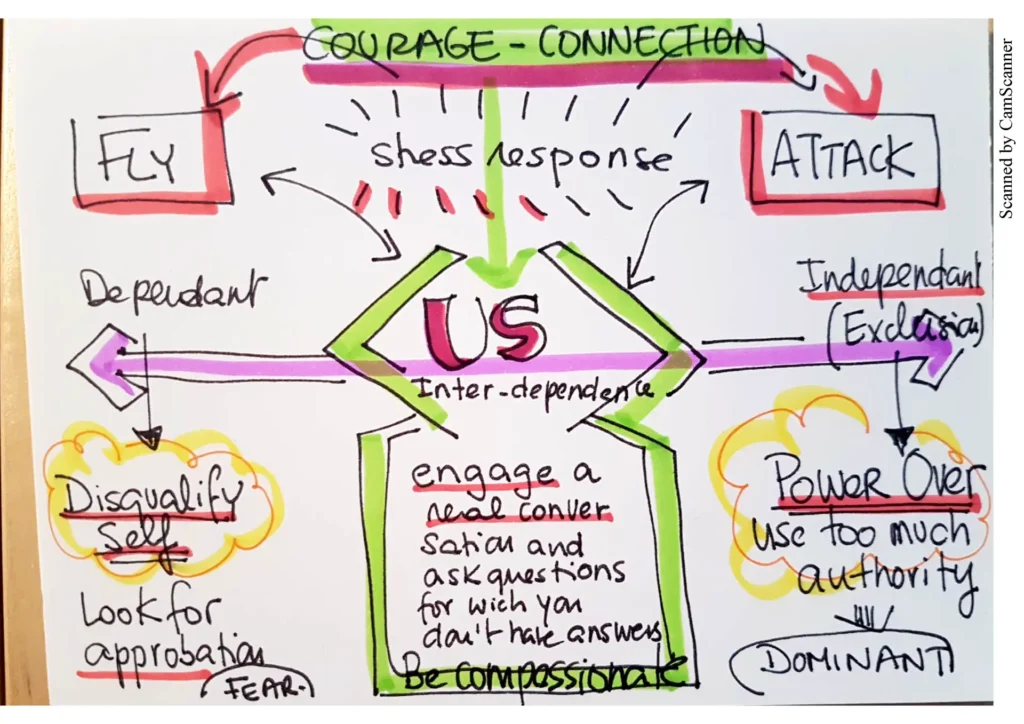 COURAGE - CONNECTION
FLY
stress response
ATTACK
Dependant
Independant
(Exclusion)
US
Inter-dependence
Disqualify
Self
Look for
approbation
FEAR.
engage a
real conver
sation and
ask questions
for wich you
don't have answers
Be compassionate
POWER OVER
use too much
authority
DOMINANT
Scanned by CamScanner